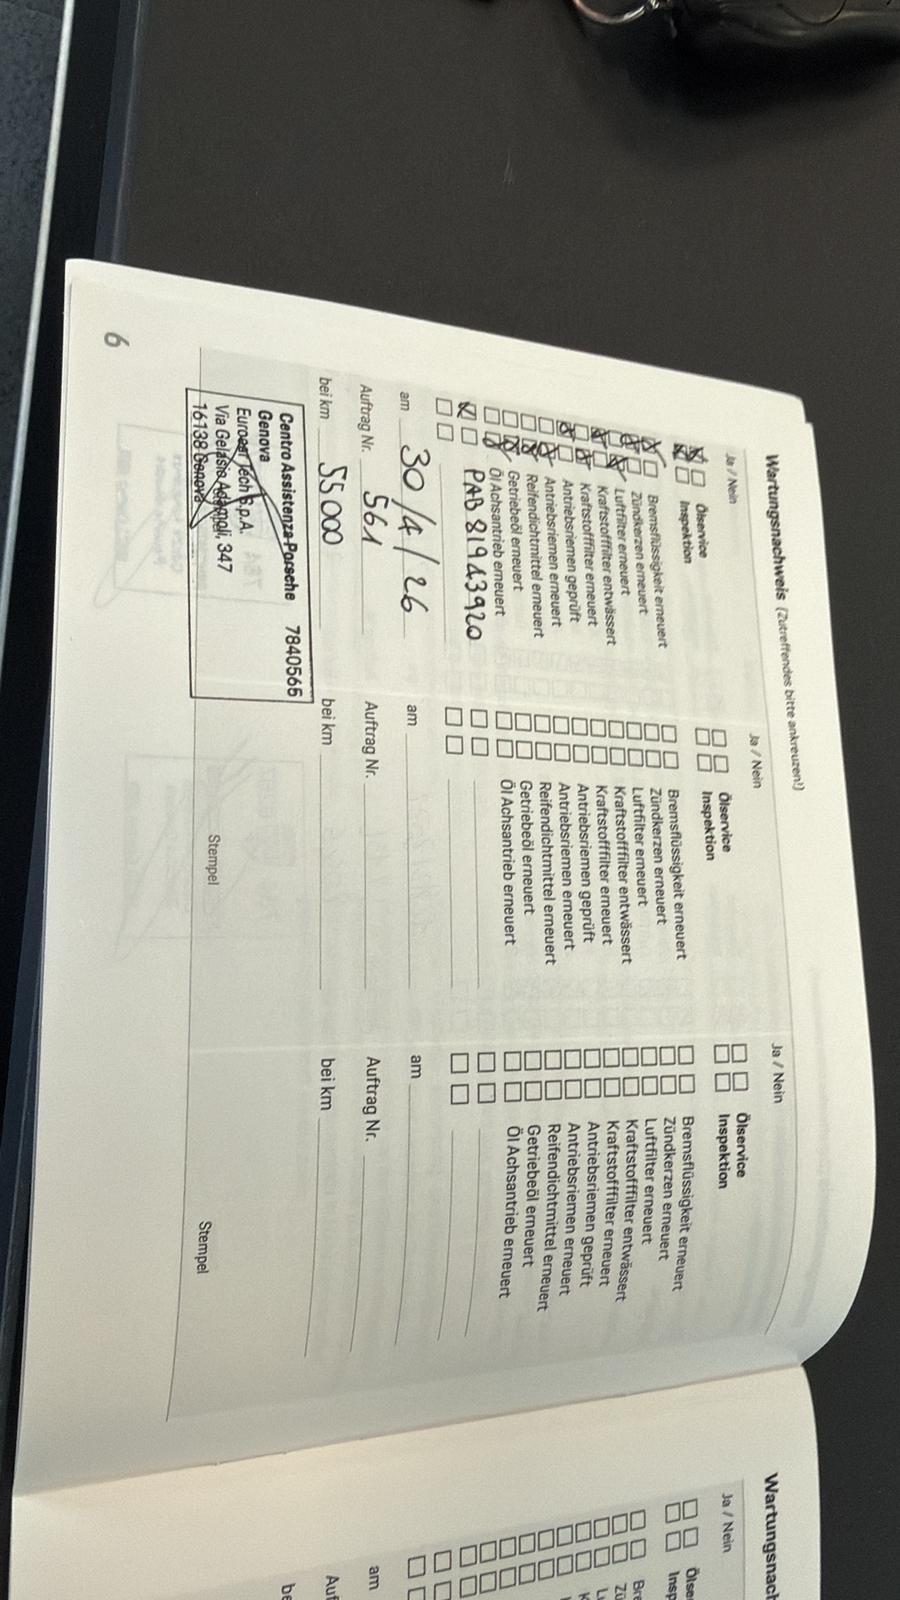 Wartungsnachweis (Zutreffendes bitte ankreuzen!)
Ja / Nein
Ölservice
Inspektion
Bremsflüssigkeit erneuert
Zündkerzen erneuert
Luftfilter erneuert
Kraftstofffilter entwässert
Kraftstofffilter erneuert
Antriebsriemen geprüft
Antriebsriemen erneuert
Reifendichtmittel erneuert
Getriebeöl erneuert
Öl Achsantrieb erneuert
PAB 81943920
am 30/4/26
Auftrag Nr. 561
bei km 55000
Centro Assistenza Porsche 7840565
Genova
Tech S.p.A.
Via Gelasio Adamoli, 347
16138 Genova
Ja / Nein
Ölservice
Inspektion
Bremsflüssigkeit erneuert
Zündkerzen erneuert
Luftfilter erneuert
Kraftstofffilter entwässert
Kraftstofffilter erneuert
Antriebsriemen geprüft
Antriebsriemen erneuert
Reifendichtmittel erneuert
Getriebeöl erneuert
Öl Achsantrieb erneuert
am
Auftrag Nr.
bei km
Stempel
Ja / Nein
Ölservice
Inspektion
Bremsflüssigkeit erneuert
Zündkerzen erneuert
Luftfilter erneuert
Kraftstofffilter entwässert
Kraftstofffilter erneuert
Antriebsriemen geprüft
Antriebsriemen erneuert
Reifendichtmittel erneuert
Getriebeöl erneuert
Öl Achsantrieb erneuert
am
Auftrag Nr.
bei km
Stempel
6
Wartungsnach
Ja / Nein
Ölse
Insp
Bre
Zü
am
Auf
be